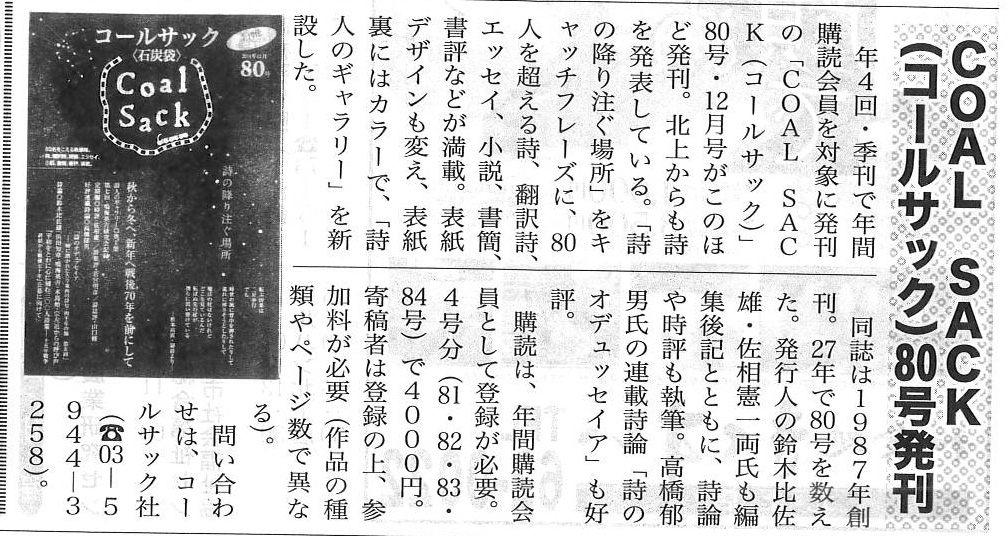 COAL SACK
(コールサック)80号発刊
年4回・季刊で年間
購読会員を対象に発刊
の「COAL SAC
K(コールサック)」
80号・12月号がこのほ
ど発刊。北上からも詩
を発表している。「詩
の降り注ぐ場所」をキ
ャッチフレーズに、80
人を超える詩、翻訳詩、
エッセイ、小説、書簡、
書評などが満載。表紙
デザインも変え、表紙
裏にはカラーで、「詩
人のギャラリー」を新
設した。
同誌は1987年創
刊。27年で80号を数え
た。発行人の鈴木比佐
雄・佐相憲一両氏も編
集後記とともに、詩論
や時評も執筆。高橋郁
男氏の連載詩論「詩の
オデュッセイア」も好
評。
購読は、年間購読会
員として登録が必要。
4号分(81・82・83・
84号)で4000円。
寄稿者は登録の上、参
加料が必要(作品の種
類やページ数で異な
る)。
問い合わ
せは、コー
ルサック社
(☎03―5
944―3
258)。
コールサック
〈石炭袋〉
80号
Coal
Sack
詩の降り注ぐ場所
秋から冬へ、新年へ戦後70年を前にして